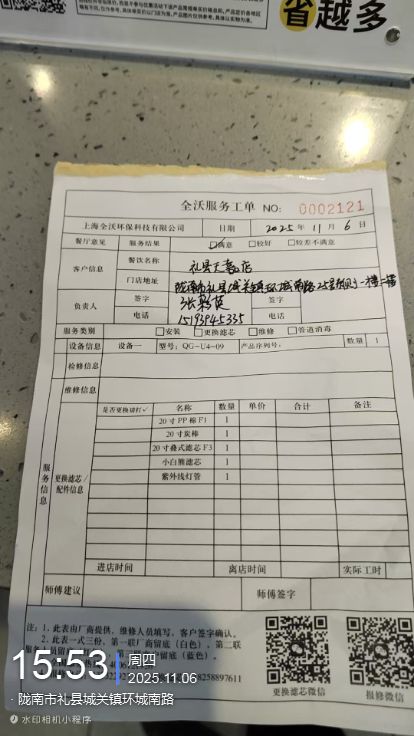 省越多
全沃服务工单 NO: 0002121
上海全沃环保科技有限公司 日期 2025年 11月 6日
餐厅意见 服务结果 ☑满意 □较好 □较差不满意
客户信息 餐饮名称
门店地址 陇南市礼县城关镇环城南路25号
负责人 签字 签字
电话 15193945335 电话
服务类别 □安装 □更换滤芯 □维修 □管道消毒
设备信息 设备一 型号: QG-U4-09 产品序列号: 数量 1
检修信息
维修信息
服务信息 更换滤芯/配件信息 是否更换请打✓ 名称 数量 单价 合计 备注
20寸PP棉F1 1
20寸炭棒 1
20寸叠式滤芯F3 1
小白熊滤芯 1
紫外线灯管 1
进店时间 离店时间 实际工时
师傅建议 师傅签字
注: 1. 此表由厂商提供, 维修人员填写, 客户签字确认。
2. 此表一式三份, 第一联厂商留底(白色), 第二联
留底(蓝色)。
8258897611
更换滤芯微信 报修微信
15:53 周四
2025.11.06
陇南市礼县城关镇环城南路
水印相机小程序